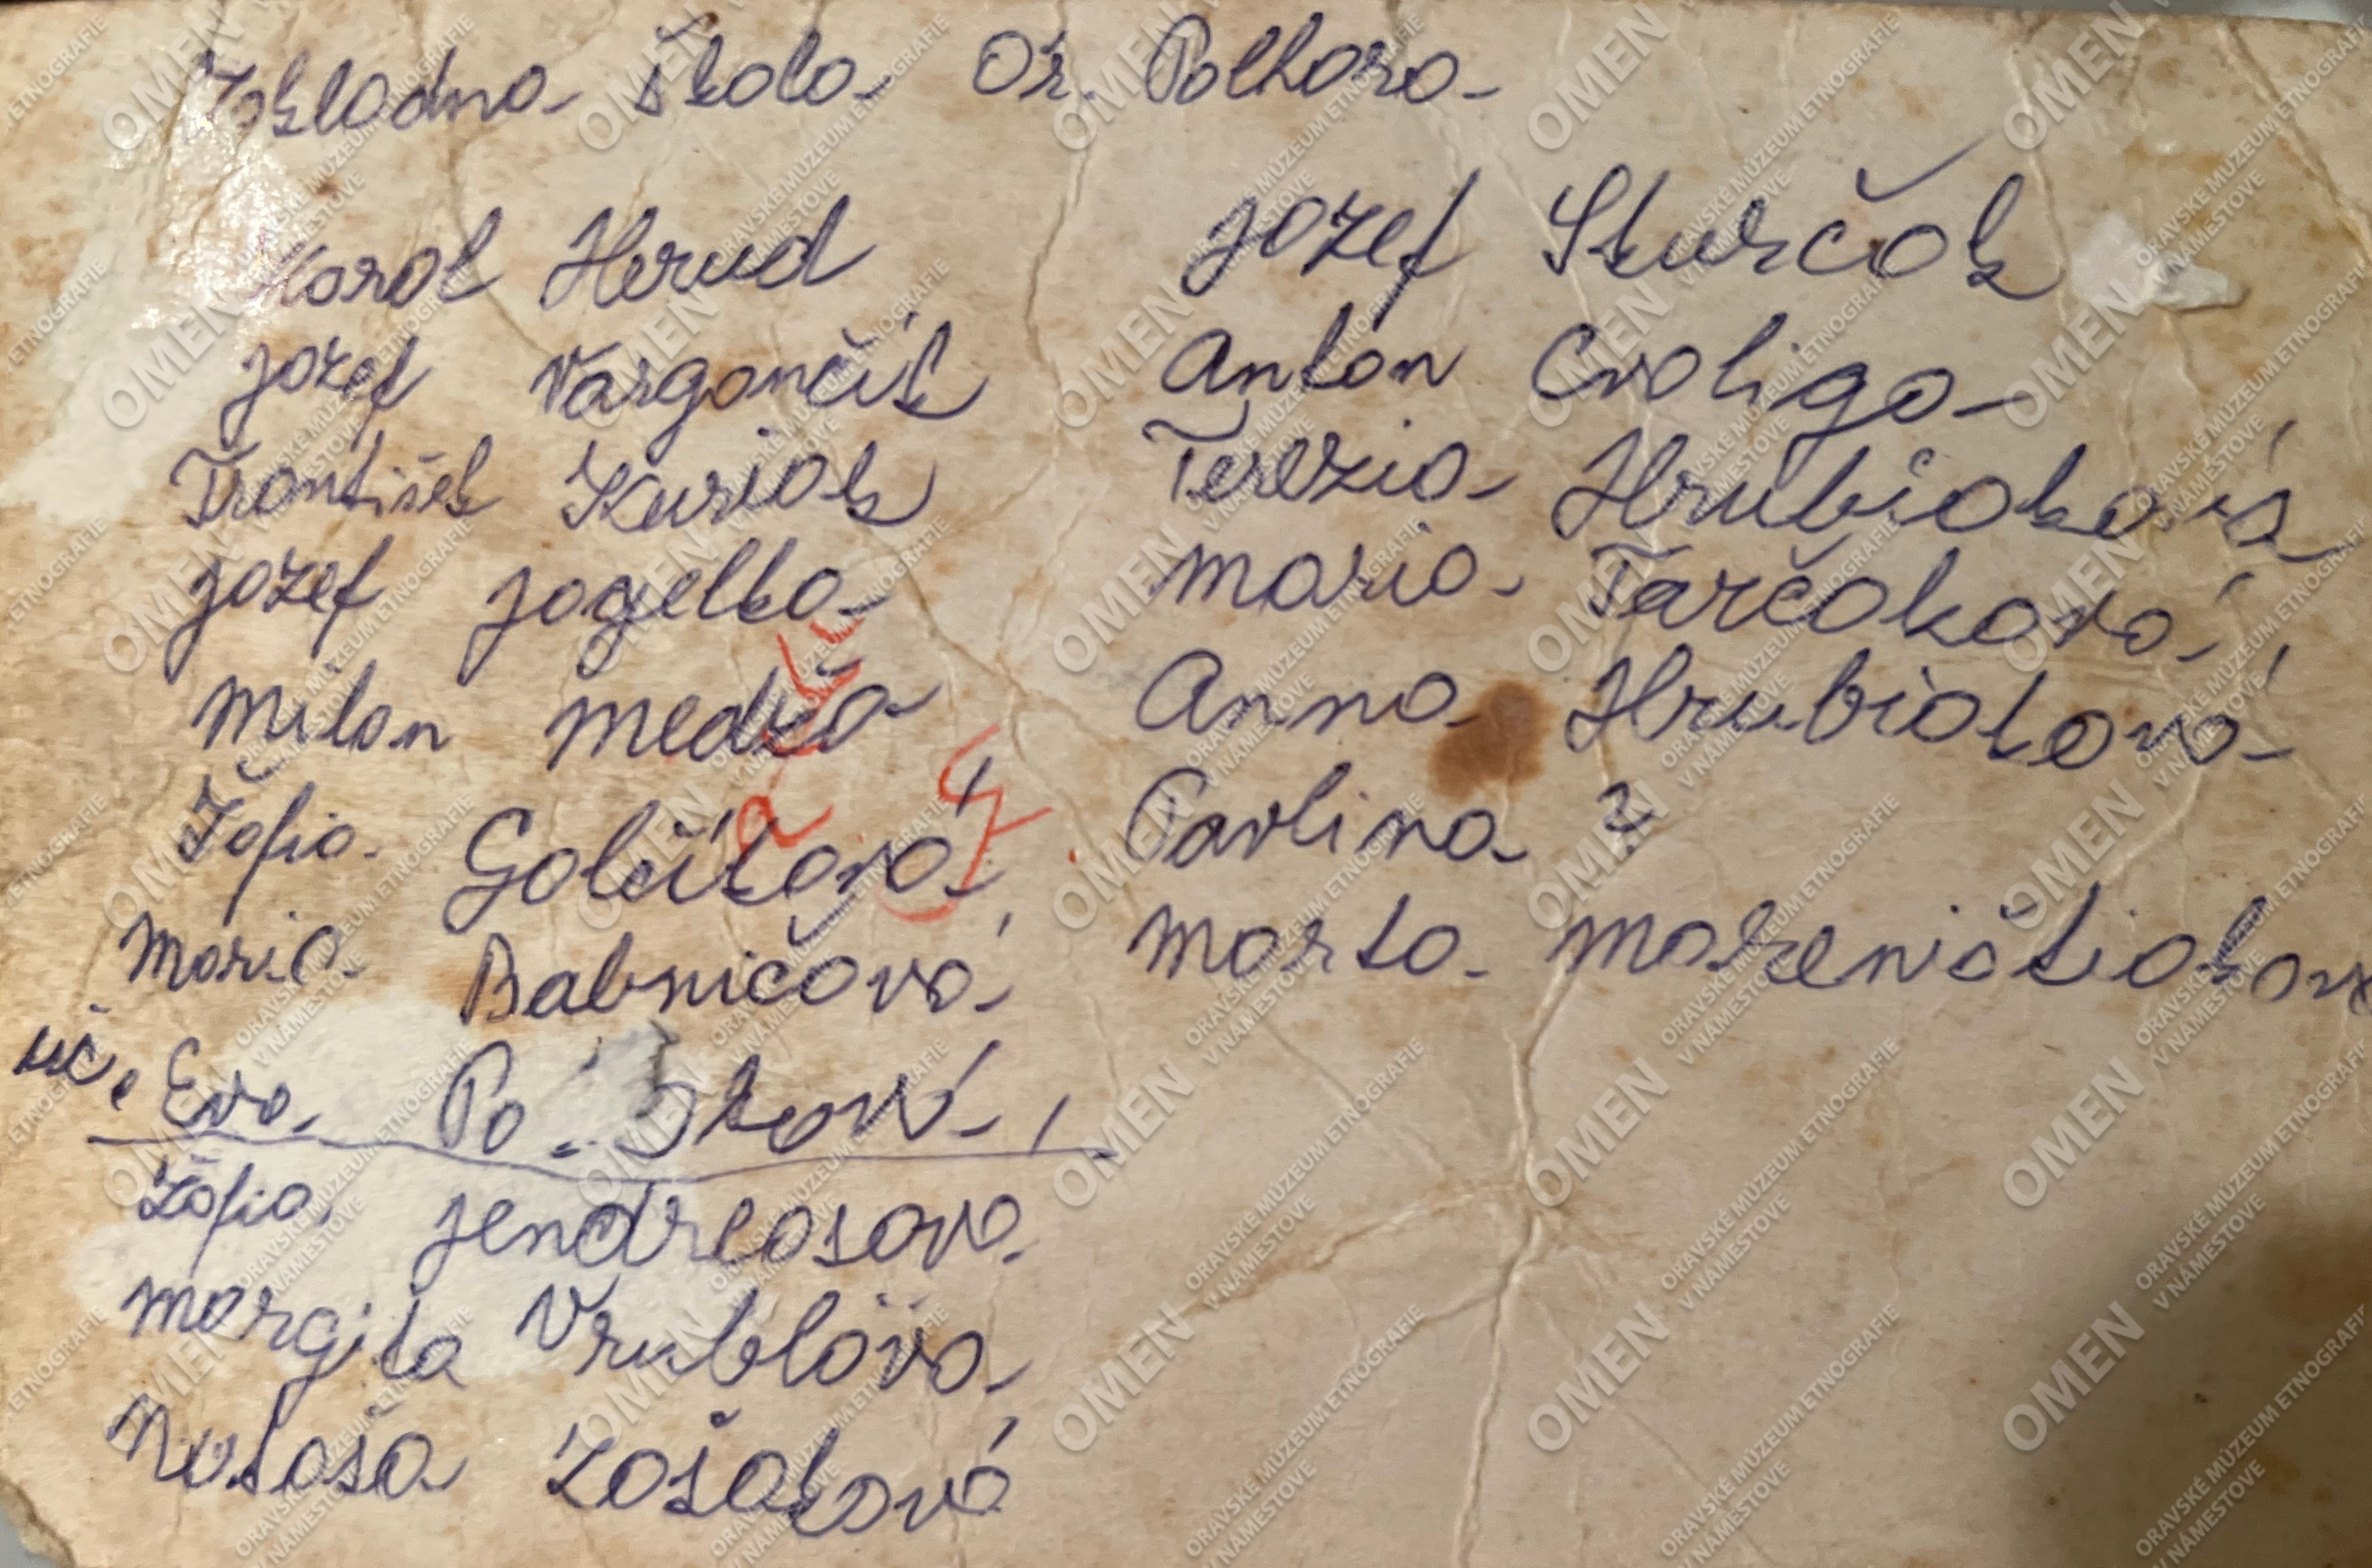 Základna Škola Or. Polhora
Karol Herud
Jozef Vargončík
František Kuriak
Jozef Jagelka
Milan Medža
Žofia Golčíková
Maria Babničová
uč. Eva
Žofia Jendreasova
Margita Vrublova
Nataša Zošaková
Jozef Skurčak
Anton Cvoliga
Terezia Hrubiaková
Maria Tarčáková
Anna Hrubiaková
Pavlina ?
Marta
OMEN
ORAVSKÉ MÚZEUM ETNOGRAFIE
V NÁMESTOVE